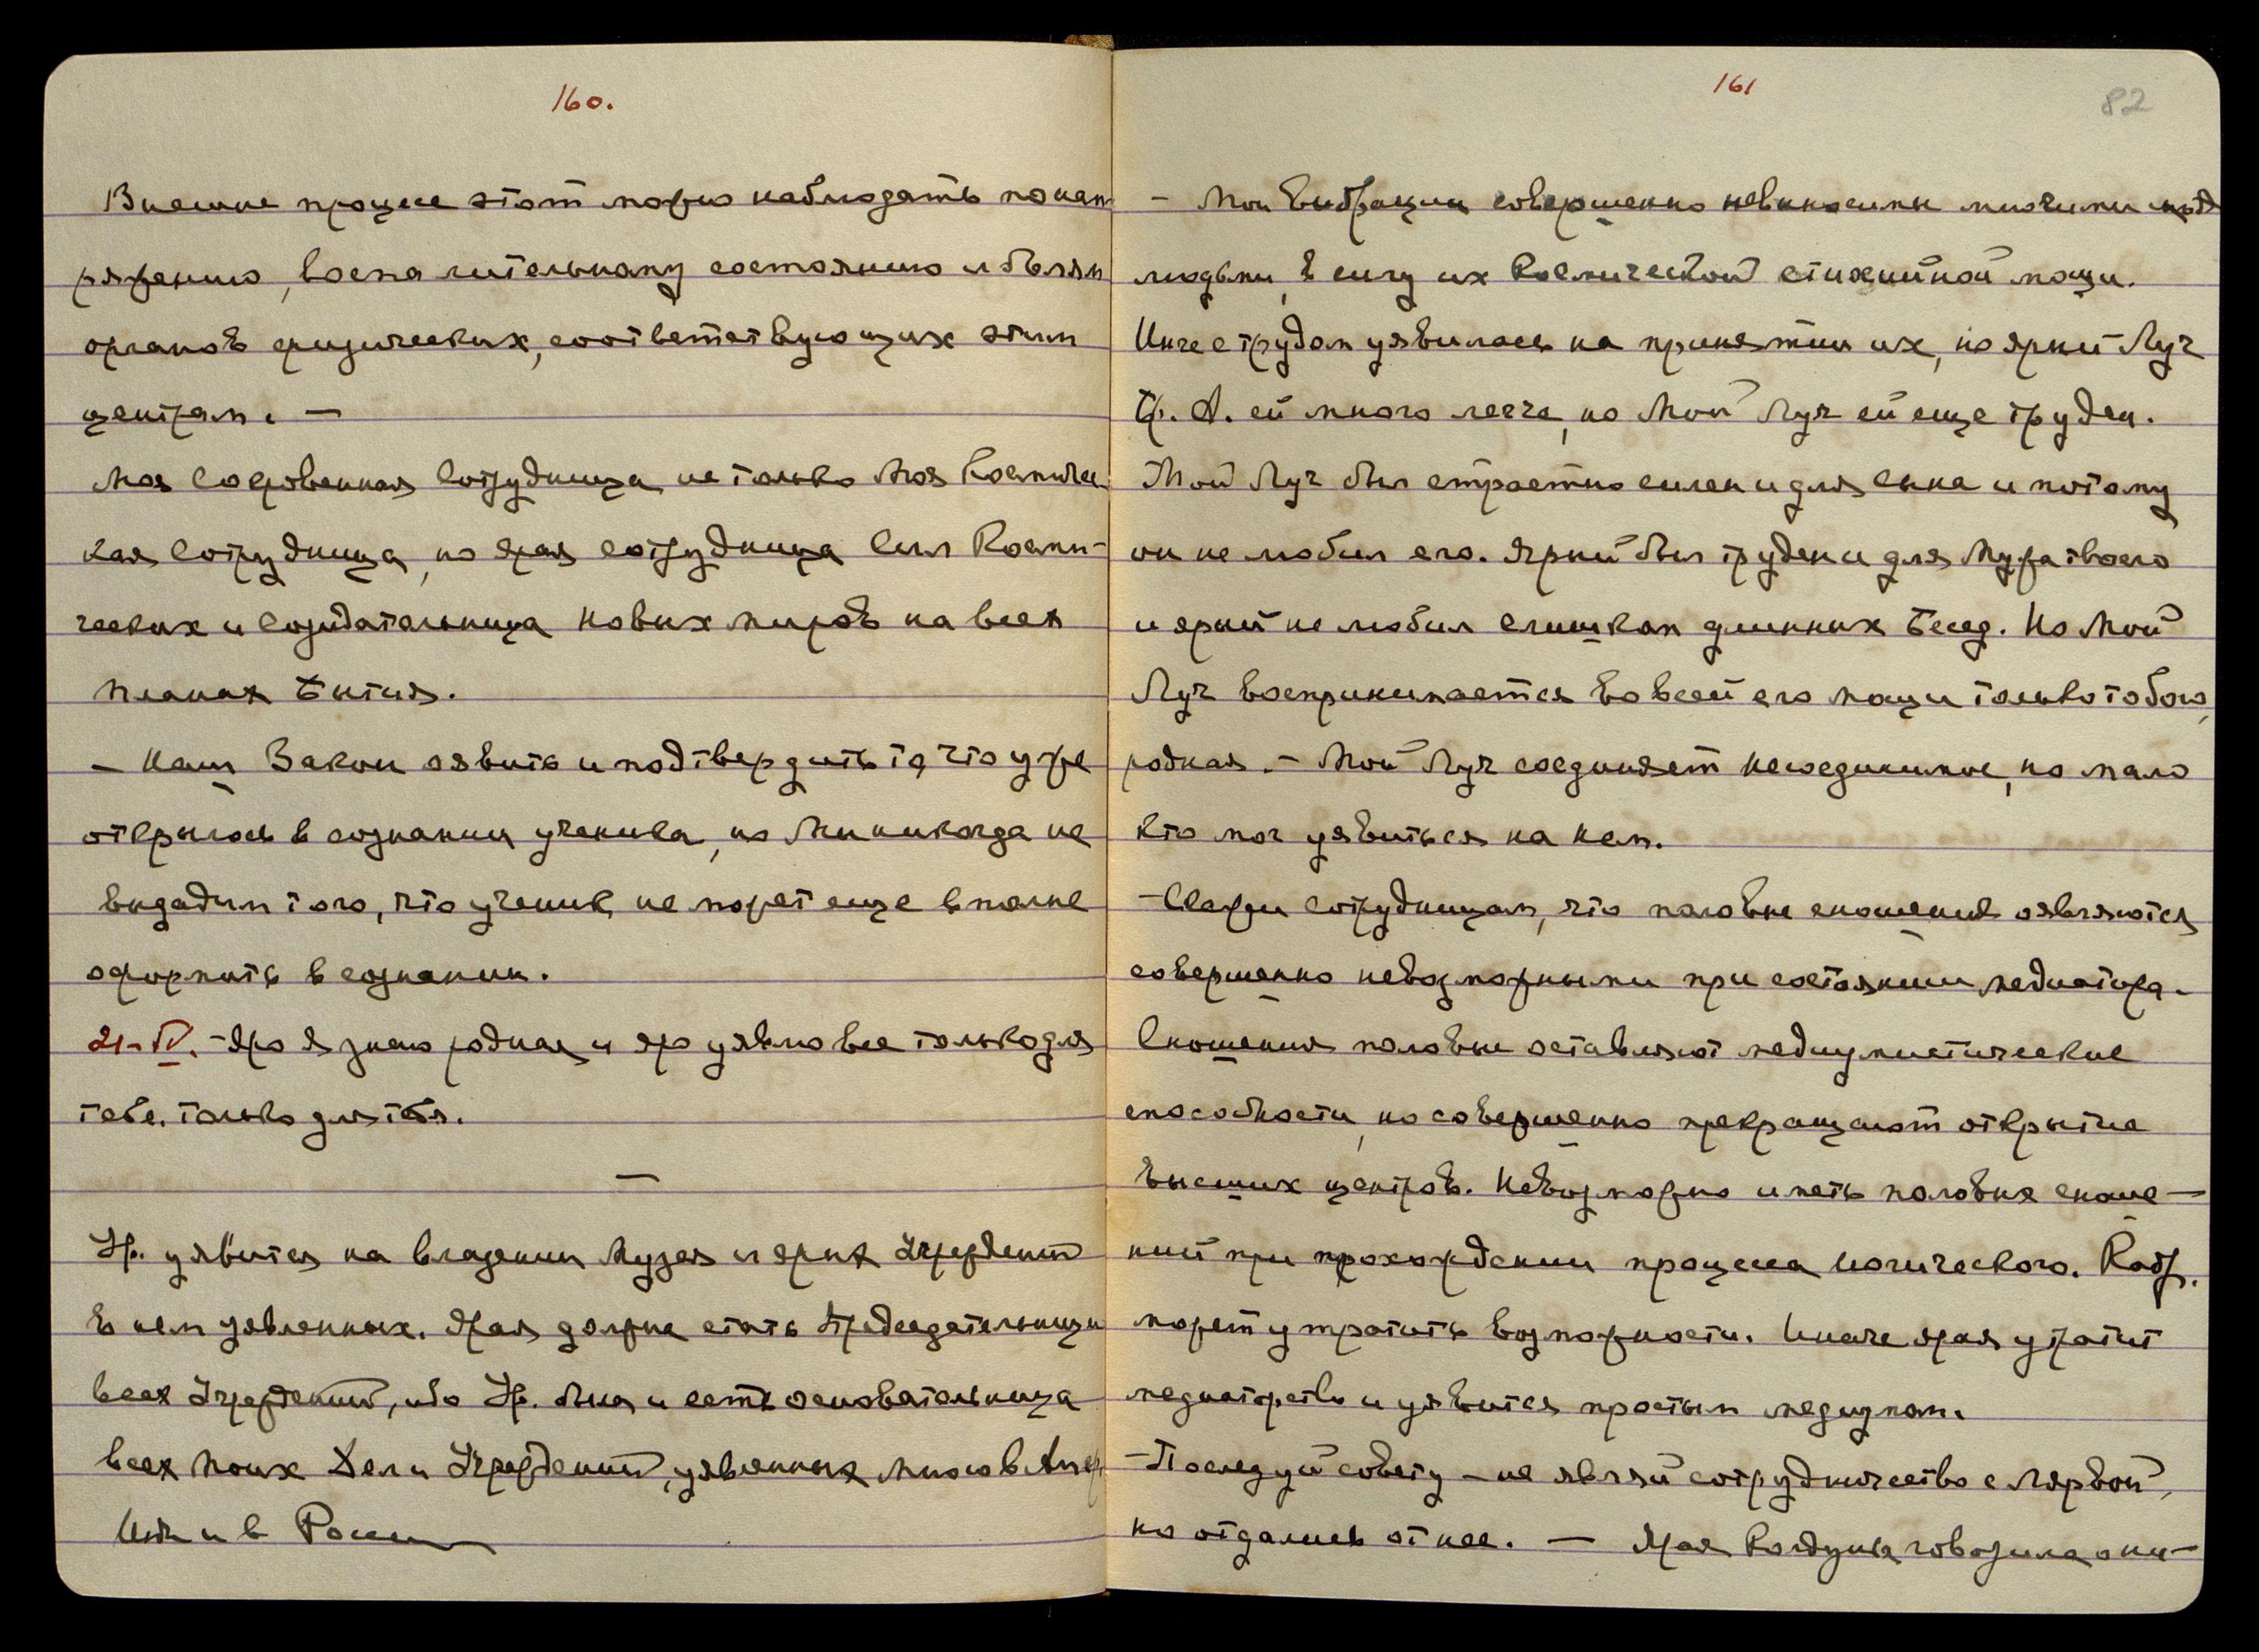 160.
Внешне процесс этот можно наблюдать по нап
ряжению, воспалительному состоянию и болям
органов физических, соответствующих этим
центрам. —
Моя Сокровенная Сотрудница не только Моя Космичес
кая Сотрудница, но ярая сотрудница Сил Косми-
ческих и Созидательница новых миров на всех
планах Бытия.
— Наш Закон оявить и подтвердить то, что уже
открылось в сознании ученика, но Мы никогда не
выдадим того, что ученик не может еще вполне
оформить в сознании.
21-IV. – Яро Я знаю родная и яро уявлю все только для
тебе. только для тебя.
—
Ур. уявится на владении Музея и ярых Учреждений
в нем уявленных. Ярая должна стать Председательницей
всех Учреждений, ибо Ур. была и есть основательница
всех Моих Дел и Учреждений, уявленных Мною в Амер
Инд и в России
161
82
– Мои вибрации совершенно невыносимы многими
людьми, в силу их Космической стихийной мощи.
Инге с трудом уявилась на принятии их, но яркий Луч
Ур. А. ей много легче, но Мой Луч ей еще труден.
Мой Луч был страстно силен и для сына и потому
он не любил его. Ярый был труден и для Мужа твоего
и ярый не любил слишком длинных Бесед. Но Мой
Луч воспринимается во всей его мощи только тобою,
родная. – Мой Луч соединяет несоединимое, но мало
кто мог уявиться на нем.
– Скажи сотрудницам, что половые сношения оявляются
совершенно невозможными при состоянии медиатора.
Сношения половые оставляют медиумистические
способности, но совершенно прекращают открытие
высших центров. Невозможно иметь половых сноше —
ний при прохождении процесса иогического. Кэтр.
может утратить возможности. Иначе ярая утратит
медиаторство и уявится простым медиумом.
– Последуй совету – не являй сотрудничество с Лярвой,
но отдались от нее. — Ярая Колдунья говорила о кни-